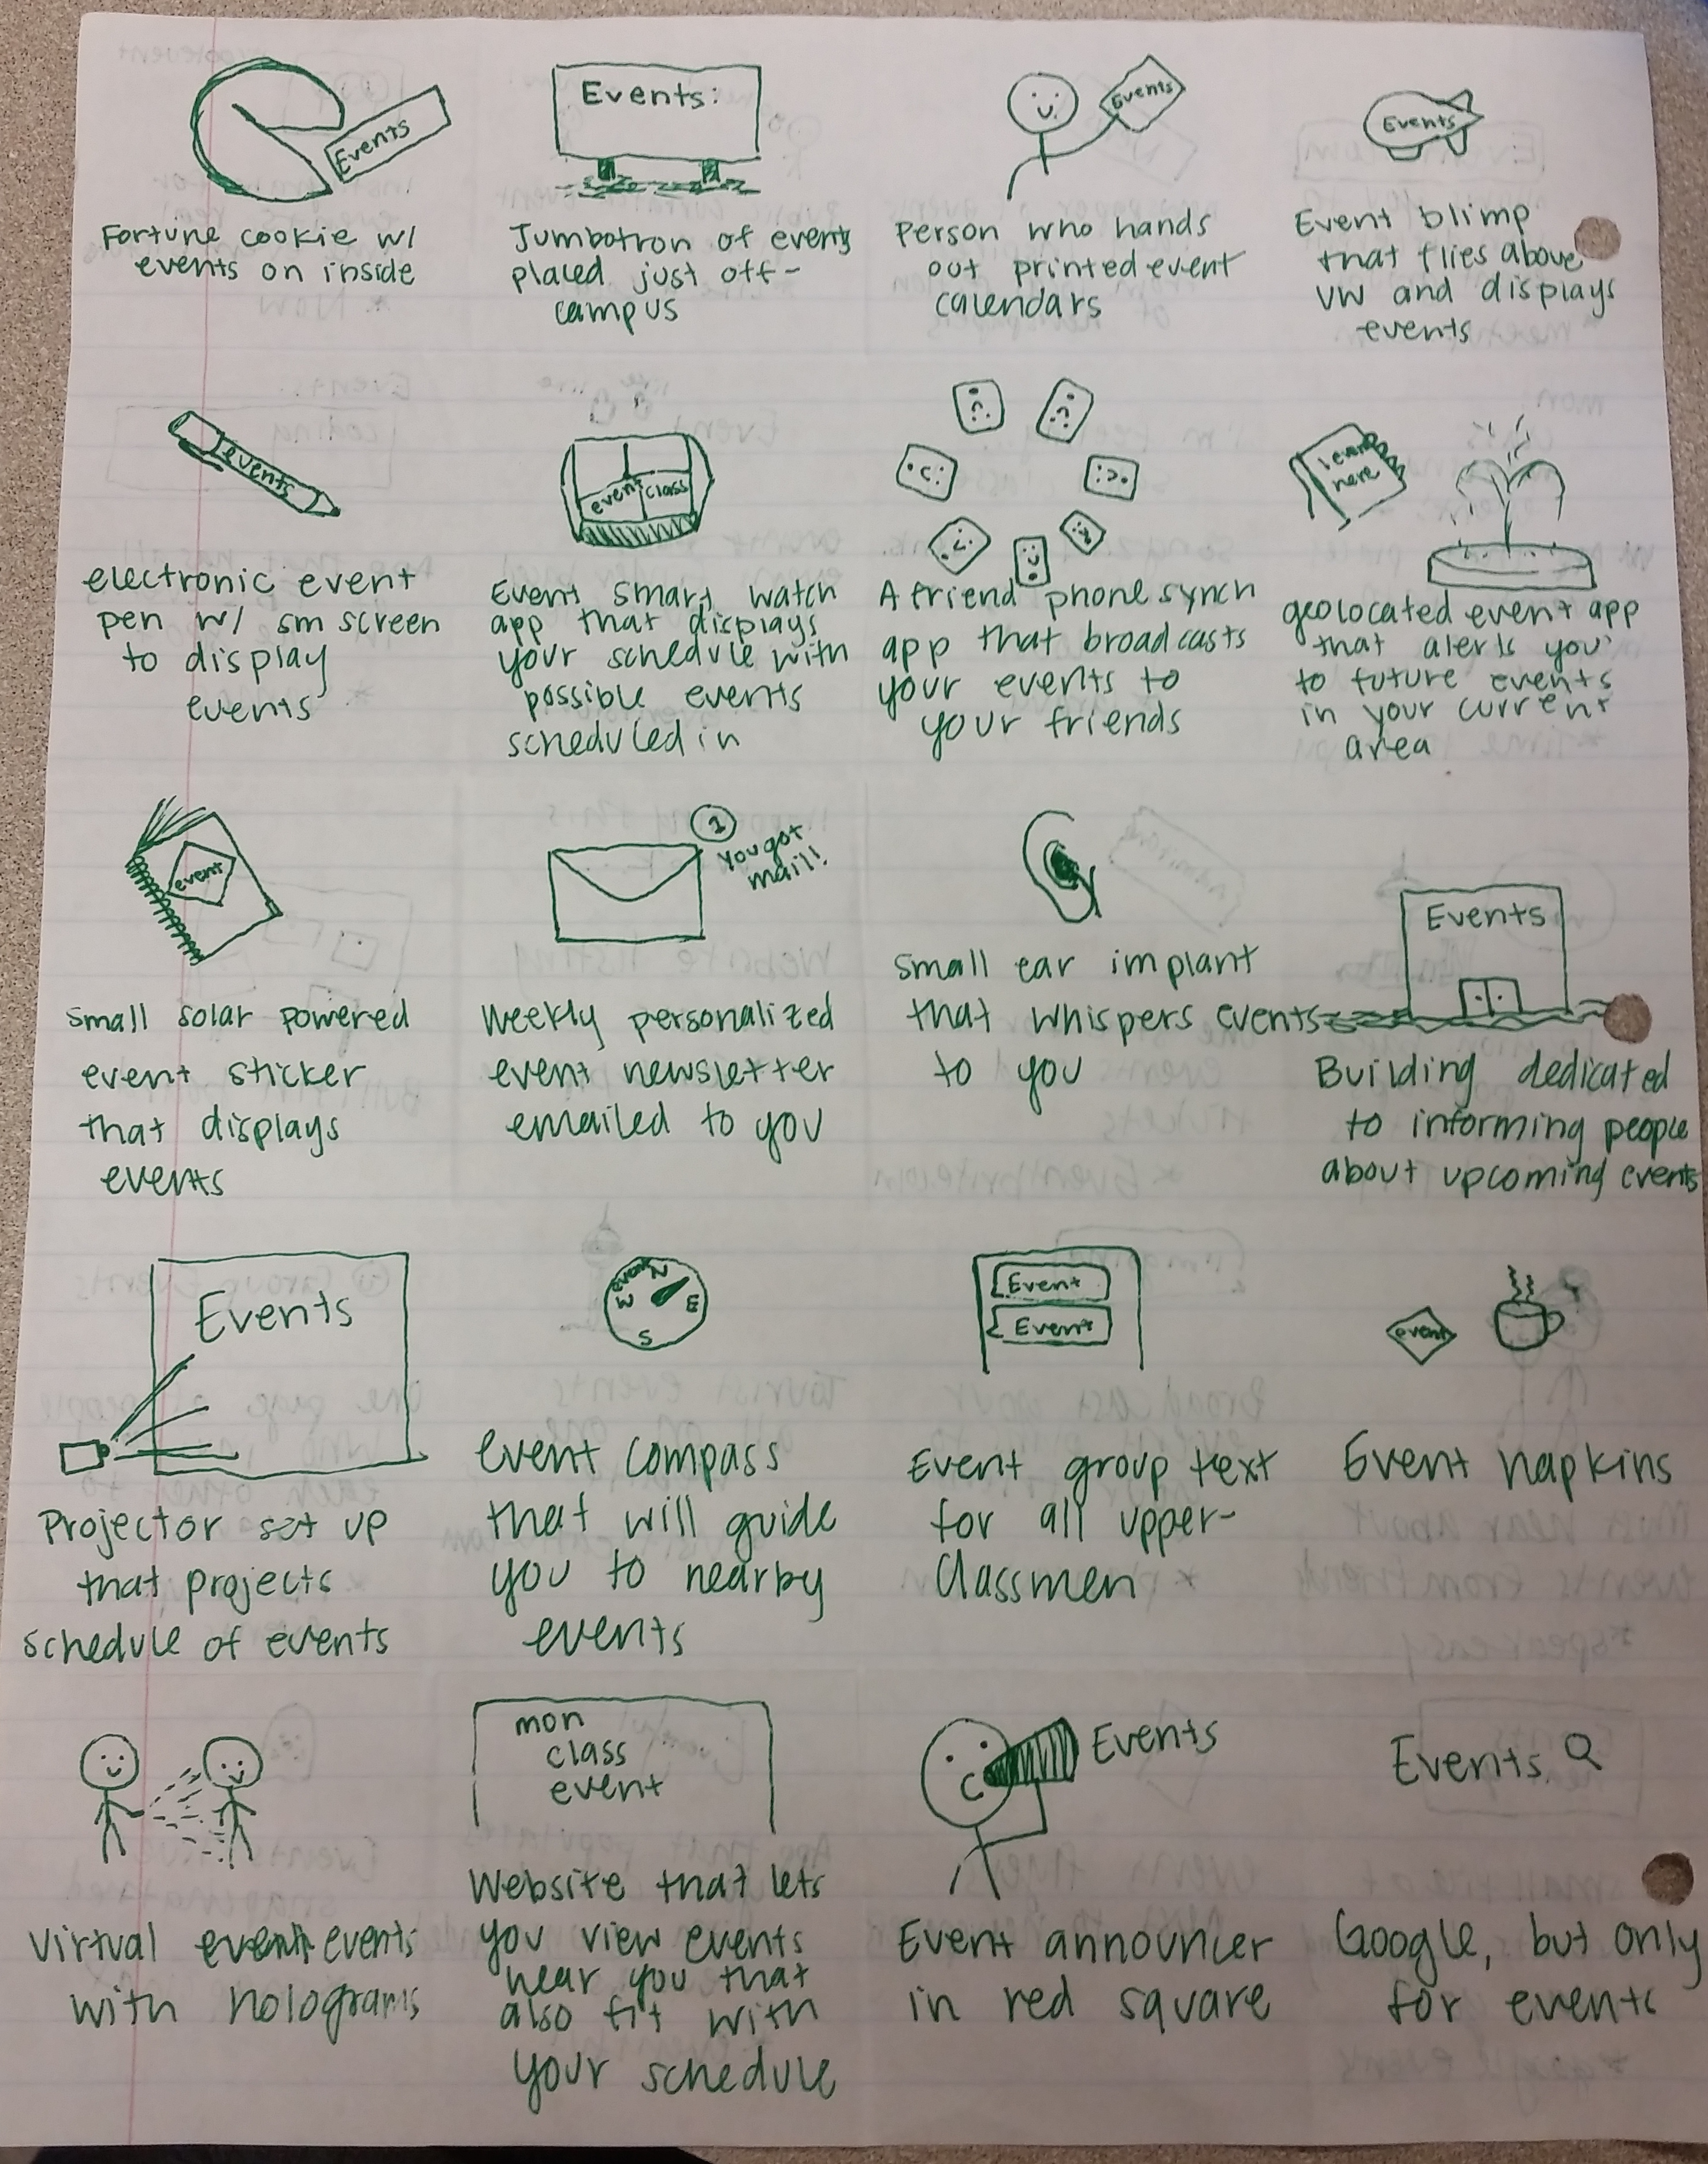 Events
Fortune cookie w/
events on inside
Events:
Jumbotron of events
placed just off-
campus
Events
Person who hands
out printed event
calendars
Events
Event blimp
that flies above
UW and displays
events
events
electronic event
pen w/ sm screen
to display
events
event class
Event smart watch
app that displays
your schedule with
possible events
scheduled in
A friend phone synch
app that broadcasts
your events to
your friends
1 event
here
geolocated event app
that alerts you
to future events
in your current
area
event
small solar powered
event sticker
that displays
events
1
You got
mail!
Weekly personalized
event newsletter
emailed to you
small ear implant
that whispers events
to you
Events
Building dedicated
to informing people
about upcoming events
Events
Projector set up
that projects
schedule of events
event N
W E
S
event compass
that will guide
you to nearby
events
Event
Event
Event group text
for all upper-
classmen
event
Event napkins
Virtual event events
with holograms
mon
class
event
Website that lets
you view events
near you that
also fit with
your schedule
Events
Event announcer
in red square
Events
Google, but only
for events